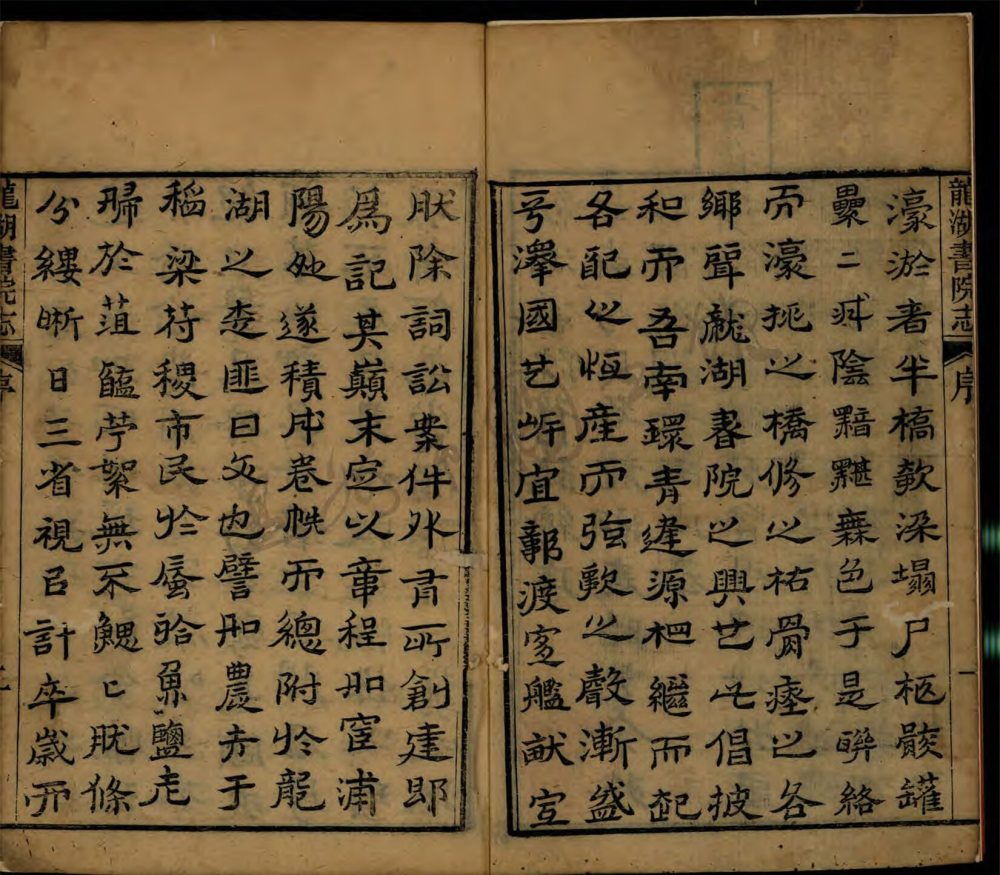 龍湖書院志 序 一
濠淤者半橋欹梁塌尸柩骸罐
纍二陰黯黮無色于是聨絡
而濠挑之橋修之枯骨瘞之各
鄉聳龍湖書院之興也此倡彼
和而吾南環青達源杷繼而起
各配以恒産而弦歌之聲漸盛
澤國也宜鄣渡定艦猷宣
肰除詞訟案件外有所創建即
爲記其巔末定以章程如窑浦
陽也遂積成卷帙而總附於龍
湖之末匪曰文也譬如農夫于
稻粱稷市民於蜃蛤魚鹽老
歸於菹醢苧絮無不鰓已肰條
分縷晰日三省視㠯計卒歲而
龍湖書院志 序